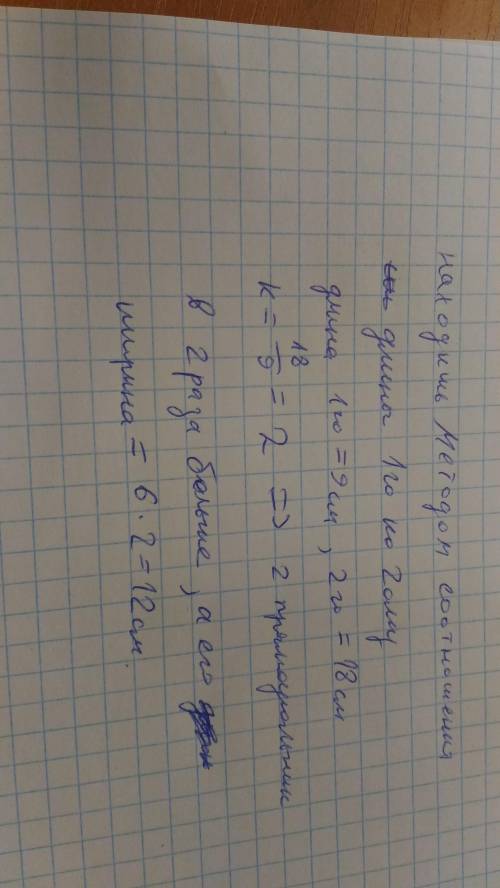 находишь методом соотношения
длины 1го ко 2ому
длина 1го = 9см, 2го = 18см
k = 18/9 = 2 => 2 прямоугольник
в 2 раза больше, а его
ширина = 6 · 2 = 12см.